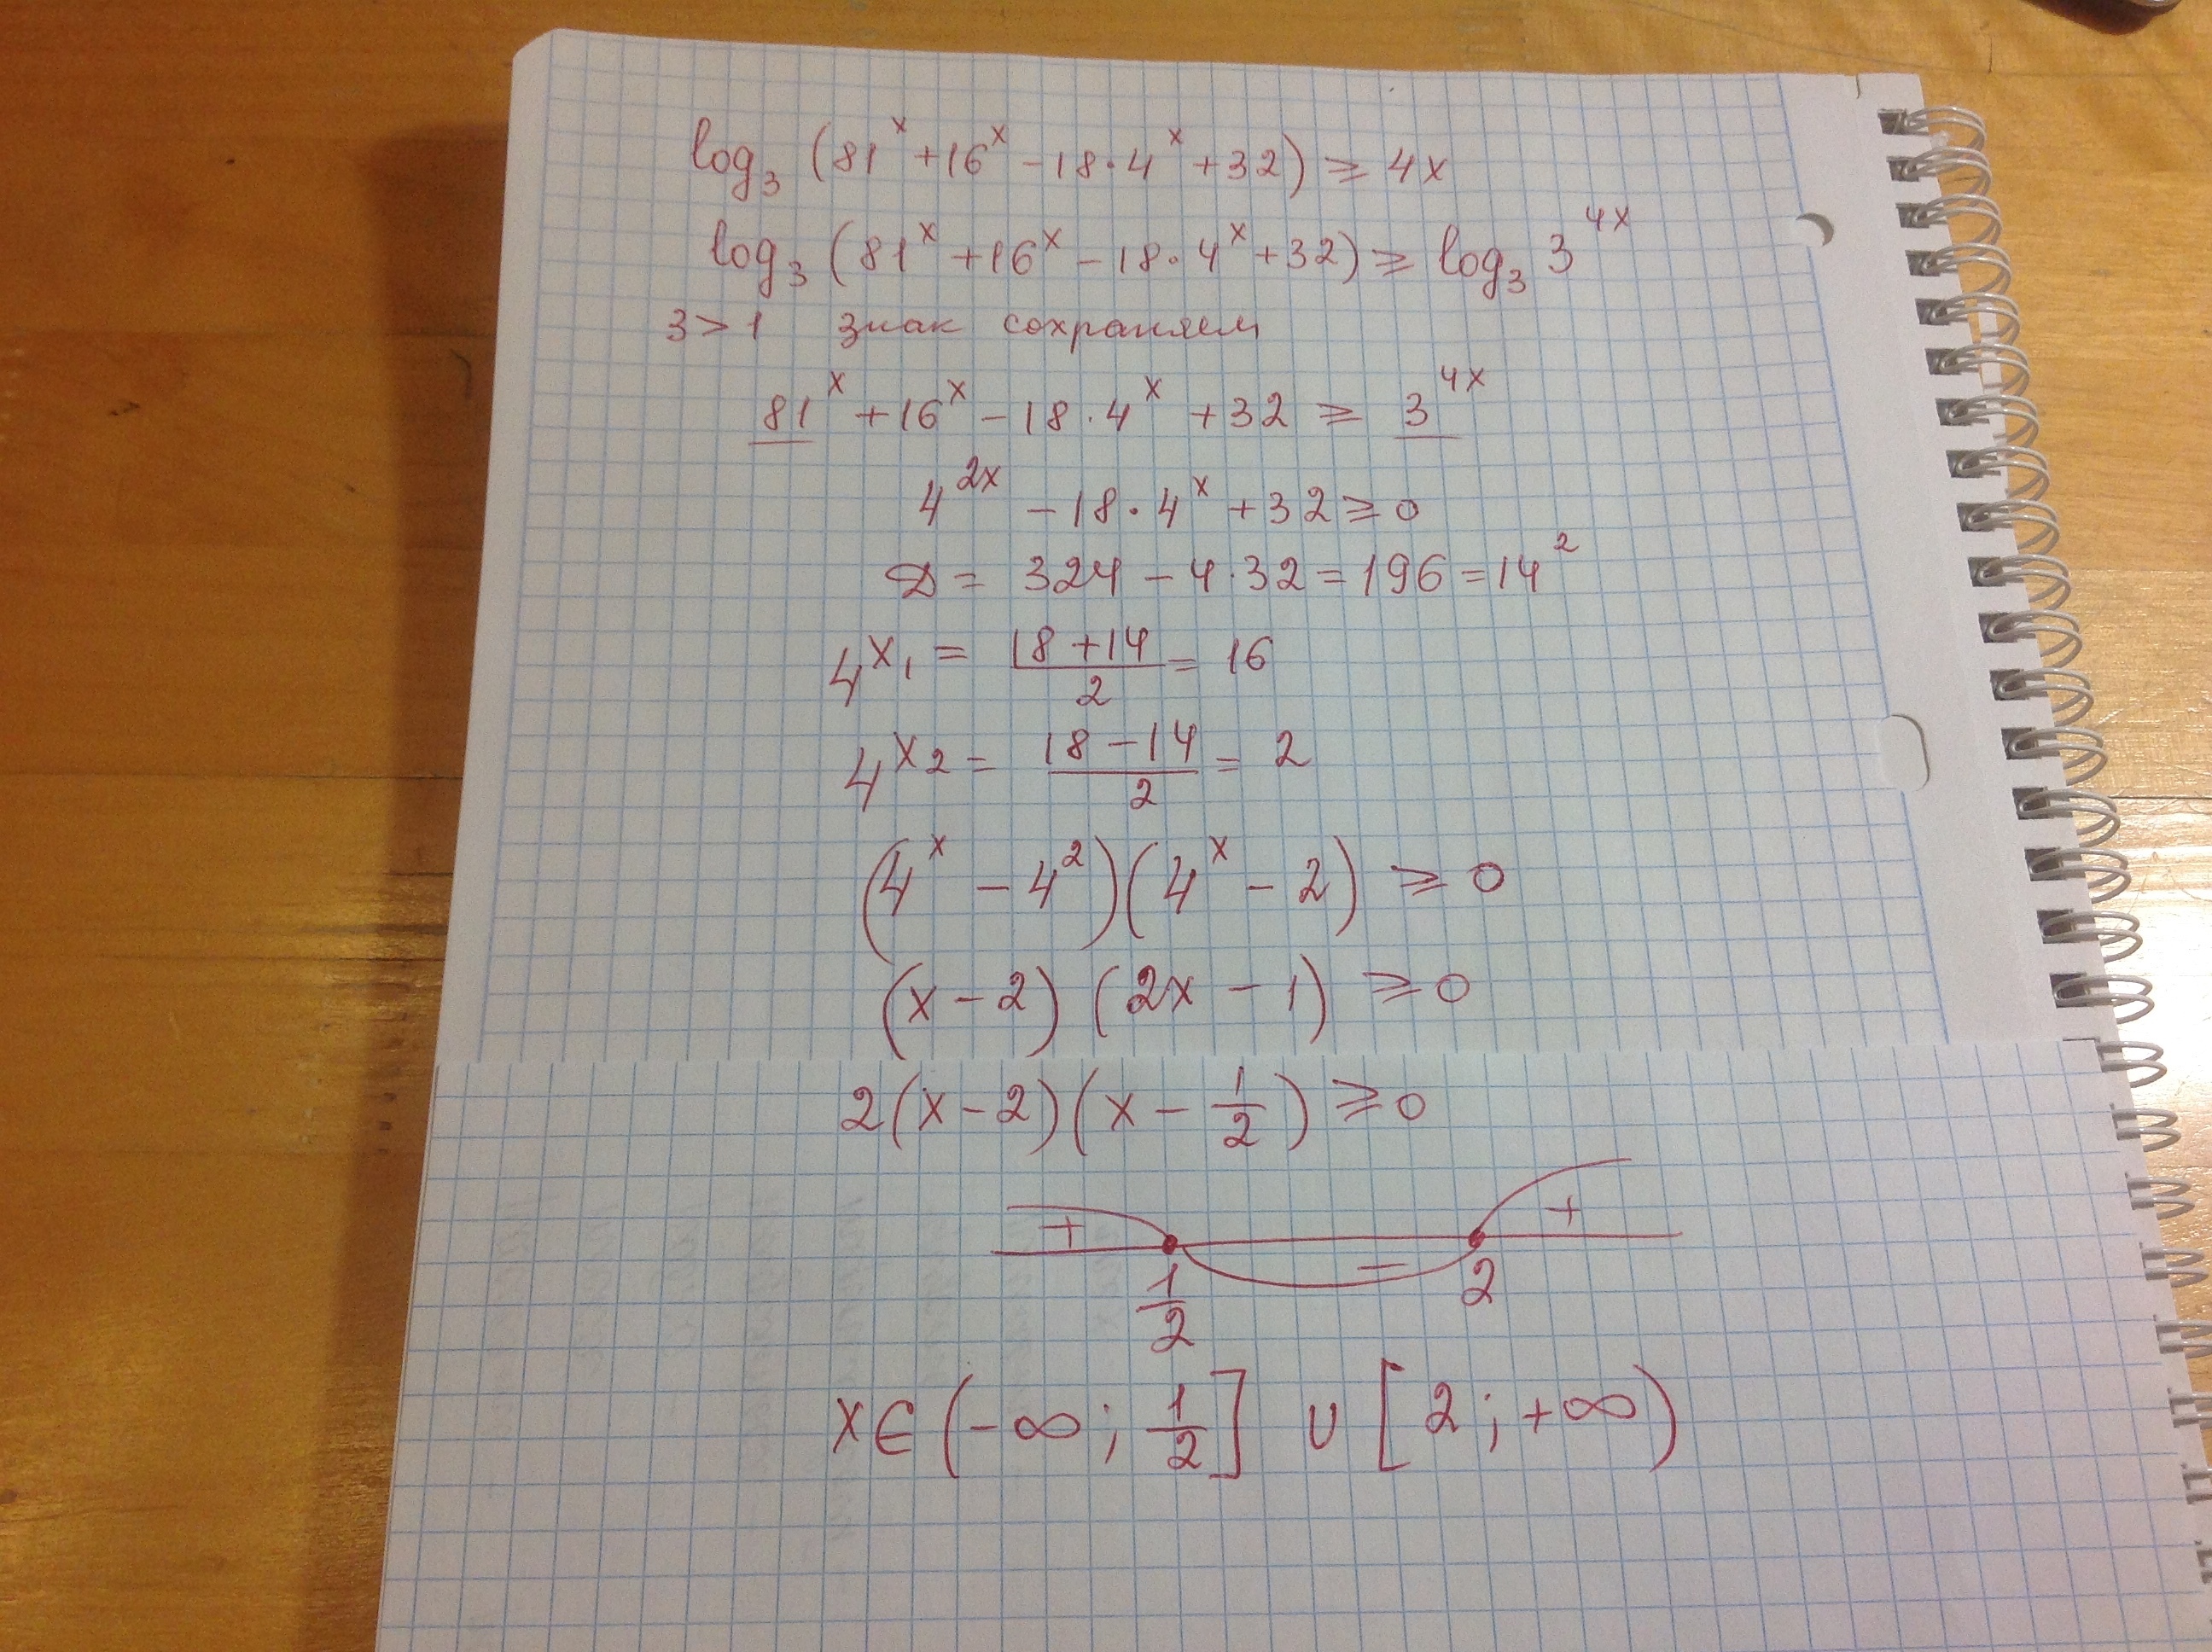 log₃ (81ˣ + 16ˣ − 18·4ˣ + 32) ⩾ 4x
log₃ (81ˣ + 16ˣ − 18·4ˣ + 32) ⩾ log₃ 3⁴ˣ
3 > 1 знак сохраняем
81ˣ + 16ˣ − 18·4ˣ + 32 ⩾ 3⁴ˣ
4²ˣ − 18·4ˣ + 32 ⩾ 0
D = 324 − 4·32 = 196 = 14²
4^x₁ = (18 + 14)/2 = 16
4^x₂ = (18 − 14)/2 = 2
(4ˣ − 4²)(4ˣ − 2) ⩾ 0
(x − 2) (2x − 1) ⩾ 0
2(x − 2)(x − 1/2) ⩾ 0
+ − +
1/2 2
x ∈ (−∞; 1/2] ∪ [2; +∞)